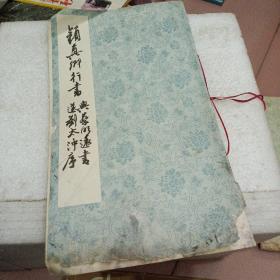 顏真卿行書
与蔡明遠書
送劉太沖序